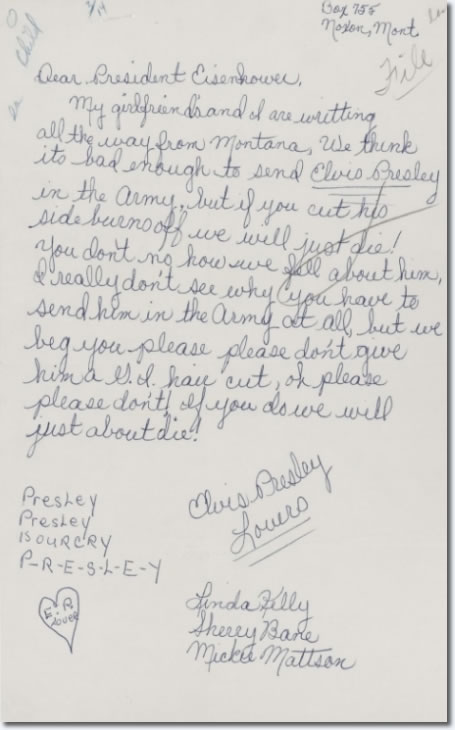 Box 755
Noxon, Mont
File
Child
Dear President Eisenhower,
My girlfriend's and I are writting
all the way from Montana, We think
its bad enough to send Elvis Presley
in the Army, but if you cut his
side burns off we will just die!
You don't no how we fell about him,
I really don't see why you have to
send him in the Army at all, but we
beg you please please don't give
him a G.I. hair cut, oh please
please don't! If you do we will
just about die!
Elvis Presley
Lovers
Presley
Presley
IS OUR CRY
P-R-E-S-L-E-Y
E.P.
Lover
Linda Kelly
Sherry Bane
Mickie Mattson